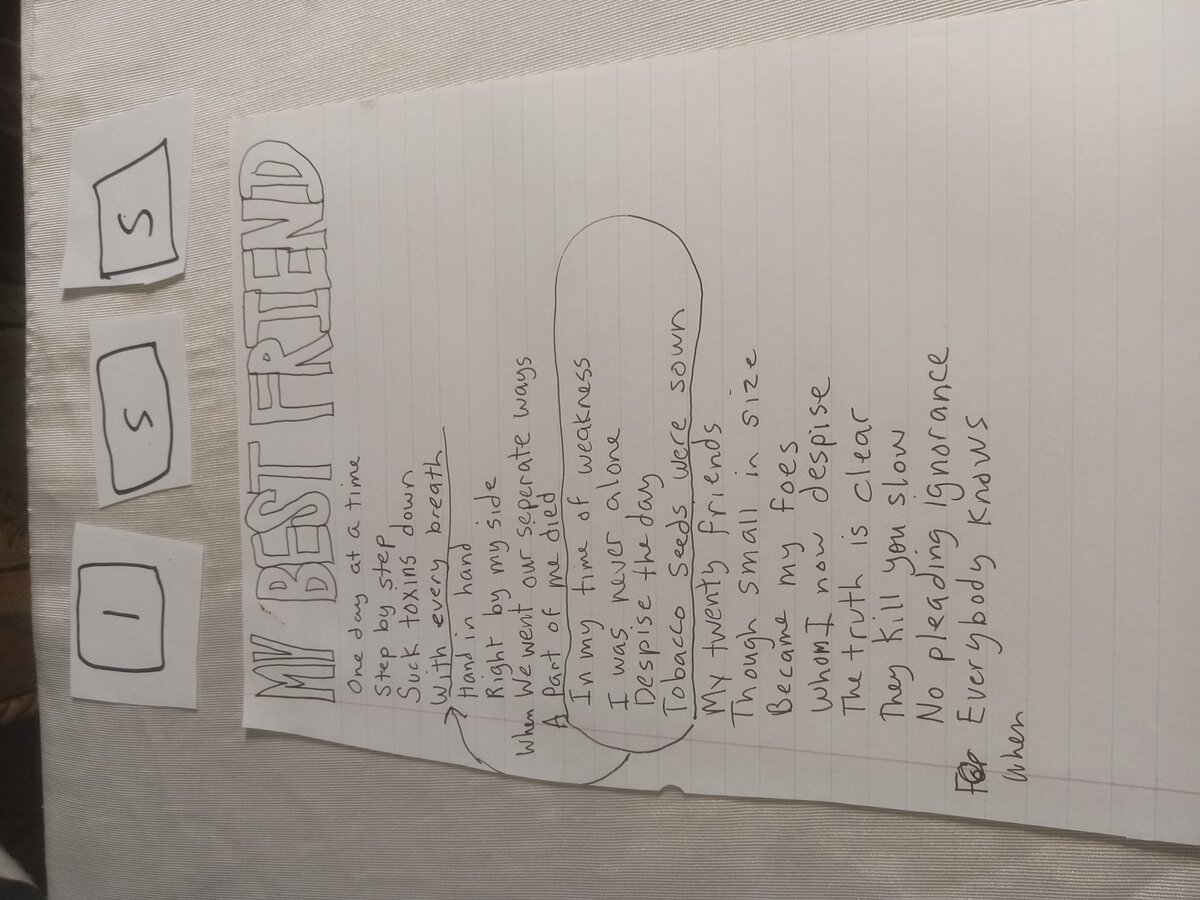 1 S S
MY BEST FRIEND
One day at a time
Step by step
Suck toxins down
With every breath
Hand in hand
Right by my side
When We went our seperate ways
A Part of me died
In my time of weakness
I was never alone
Despise the day
Tobacco seeds were sown
My twenty friends
Though small in size
Became my foes
Whom I now despise
The truth is clear
They kill you slow
No pleading ignorance
For Everybody Knows
When